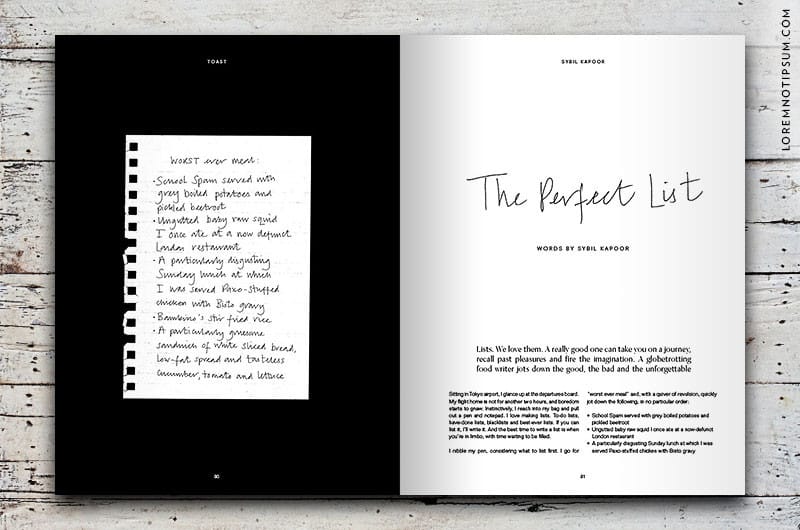 TOAST
WORST ever meal:
• School Spam served with
grey boiled potatoes and
pickled beetroot
• Ungutted baby raw squid
I once ate at a now defunct
London restaurant
• A particularly disgusting
Sunday lunch at which
I was served Paxo-stuffed
chicken with Bisto gravy
• Bambino's stir fried rice
• A particularly gruesome
sandwich of white sliced bread,
low-fat spread and tasteless
cucumber, tomato and lettuce
80
SYBIL KAPOOR
The Perfect List
WORDS BY SYBIL KAPOOR
Lists. We love them. A really good one can take you on a journey,
recall past pleasures and fire the imagination. A globetrotting
food writer jots down the good, the bad and the unforgettable
Sitting in Tokyo airport, I glance up at the departures board.
My flight home is not for another two hours, and boredom
starts to gnaw. Instinctively, I reach into my bag and pull
out a pen and notepad. I love making lists. To-do lists,
have-done lists, blacklists and best-ever lists. If you can
list it, I'll write it. And the best time to write a list is when
you're in limbo, with time waiting to be filled.
I nibble my pen, considering what to list first. I go for
"worst ever meal" and, with a quiver of revulsion, quickly
jot down the following, in no particular order:
• School Spam served with grey boiled potatoes and
pickled beetroot
• Ungutted baby raw squid I once ate at a now-defunct
London restaurant
• A particularly disgusting Sunday lunch at which I was
served Paxo-stuffed chicken with Bisto gravy
81
LOREMNOTIPSUM.COM